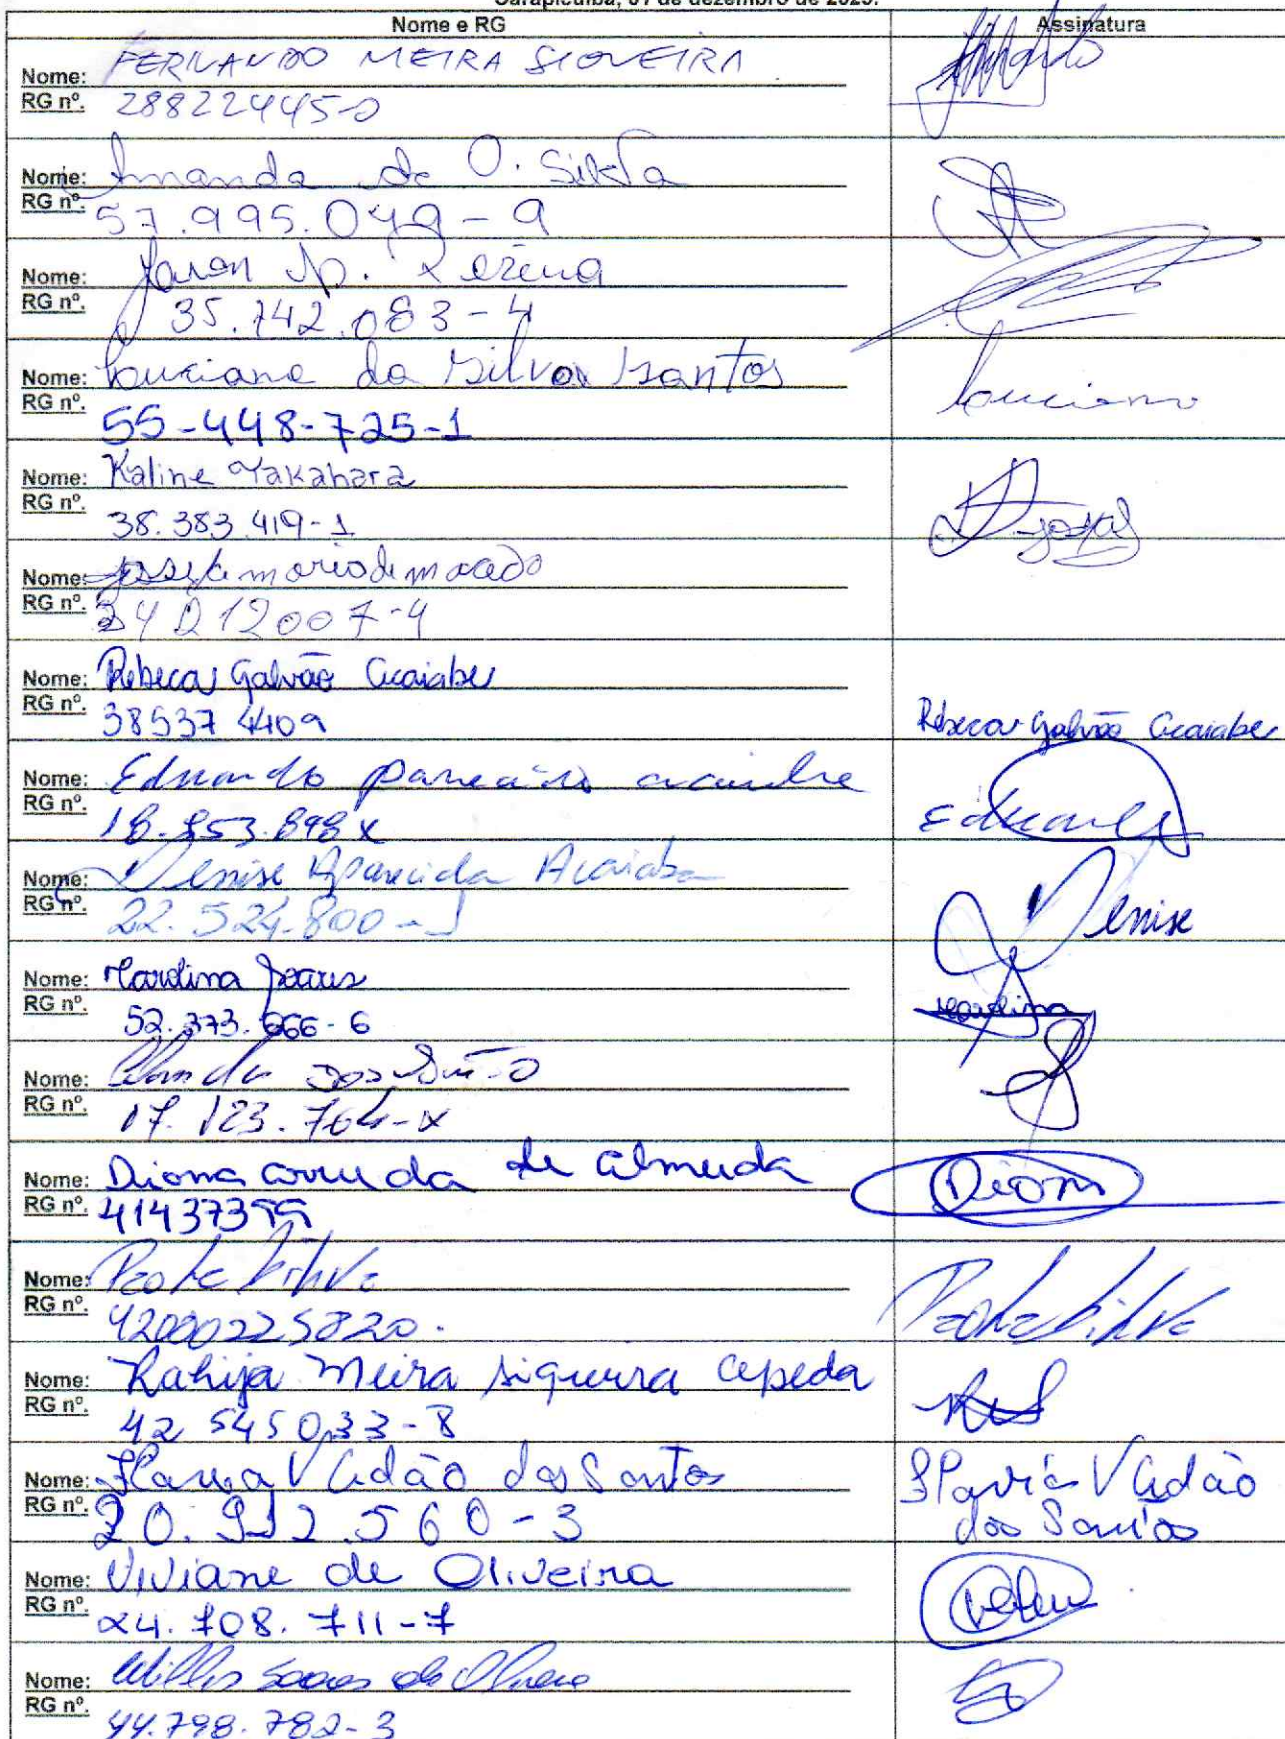 Carapicuíba, 01 de dezembro de 2023.
Nome e RG Assinatura
Nome: FERNANDO MEIRA SIQUEIRA
RG nº. 288224450
Nome: Amanda de O. Silva
RG nº. 57.995.049-9
Nome: Ap. Pereira
RG nº. 35.742.083-4
Nome: Luciana da Silva Santos Luciana
RG nº. 55-448-725-1
Nome: Kaline Takahara
RG nº. 38.383.419-1
Nome: maria de macedo
RG nº.
Nome: Rebeca Galvão Acaiabe
RG nº. 385374409 Rebeca Galvão Acaiabe
Nome: Eduardo
RG nº. 18.853.898 X Eduardo
Nome: Denise Aparecida Acaiaba
RG nº. 22.524.800-1 Denise
Nome: Karolina Soares
RG nº. 52.373.666-6 Karolina
Nome:
RG nº. 17.123.764-X
Nome: Dioma arruda de almeida Diom
RG nº. 41437399
Nome: Silva
RG nº. 42000225820. Silva
Nome: Kahija Meira siqueira Cepeda
RG nº. 42 545 033-8
Nome: Flavia V Adão dos Santos Flavia V Adão
RG nº. 20.912.560-3 dos Santos
Nome: Viviane de Oliveira
RG nº. 24.708.711-7
Nome: Soares de Oliveira
RG nº. 44.798.782-3